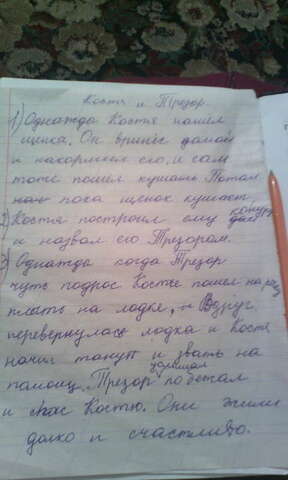 Костя и Трезор.
1) Однажда Костя нашел
щенка. Он принёс домой
и накормил его, и сам
тоже пошел кушать Потом
пока щенок кушает
2) Костя построил ему конуру
и назвал его Трезором.
3) Однажда когда Трезор
чуть подрос Костя пошел на реку
плыть на лодке, и Вдруг
перевернулась лодка и Костя
начил тануть и звать на
памощ. Трезор услышал побежал
и спас Костю. Они жили
долко и счастливо.